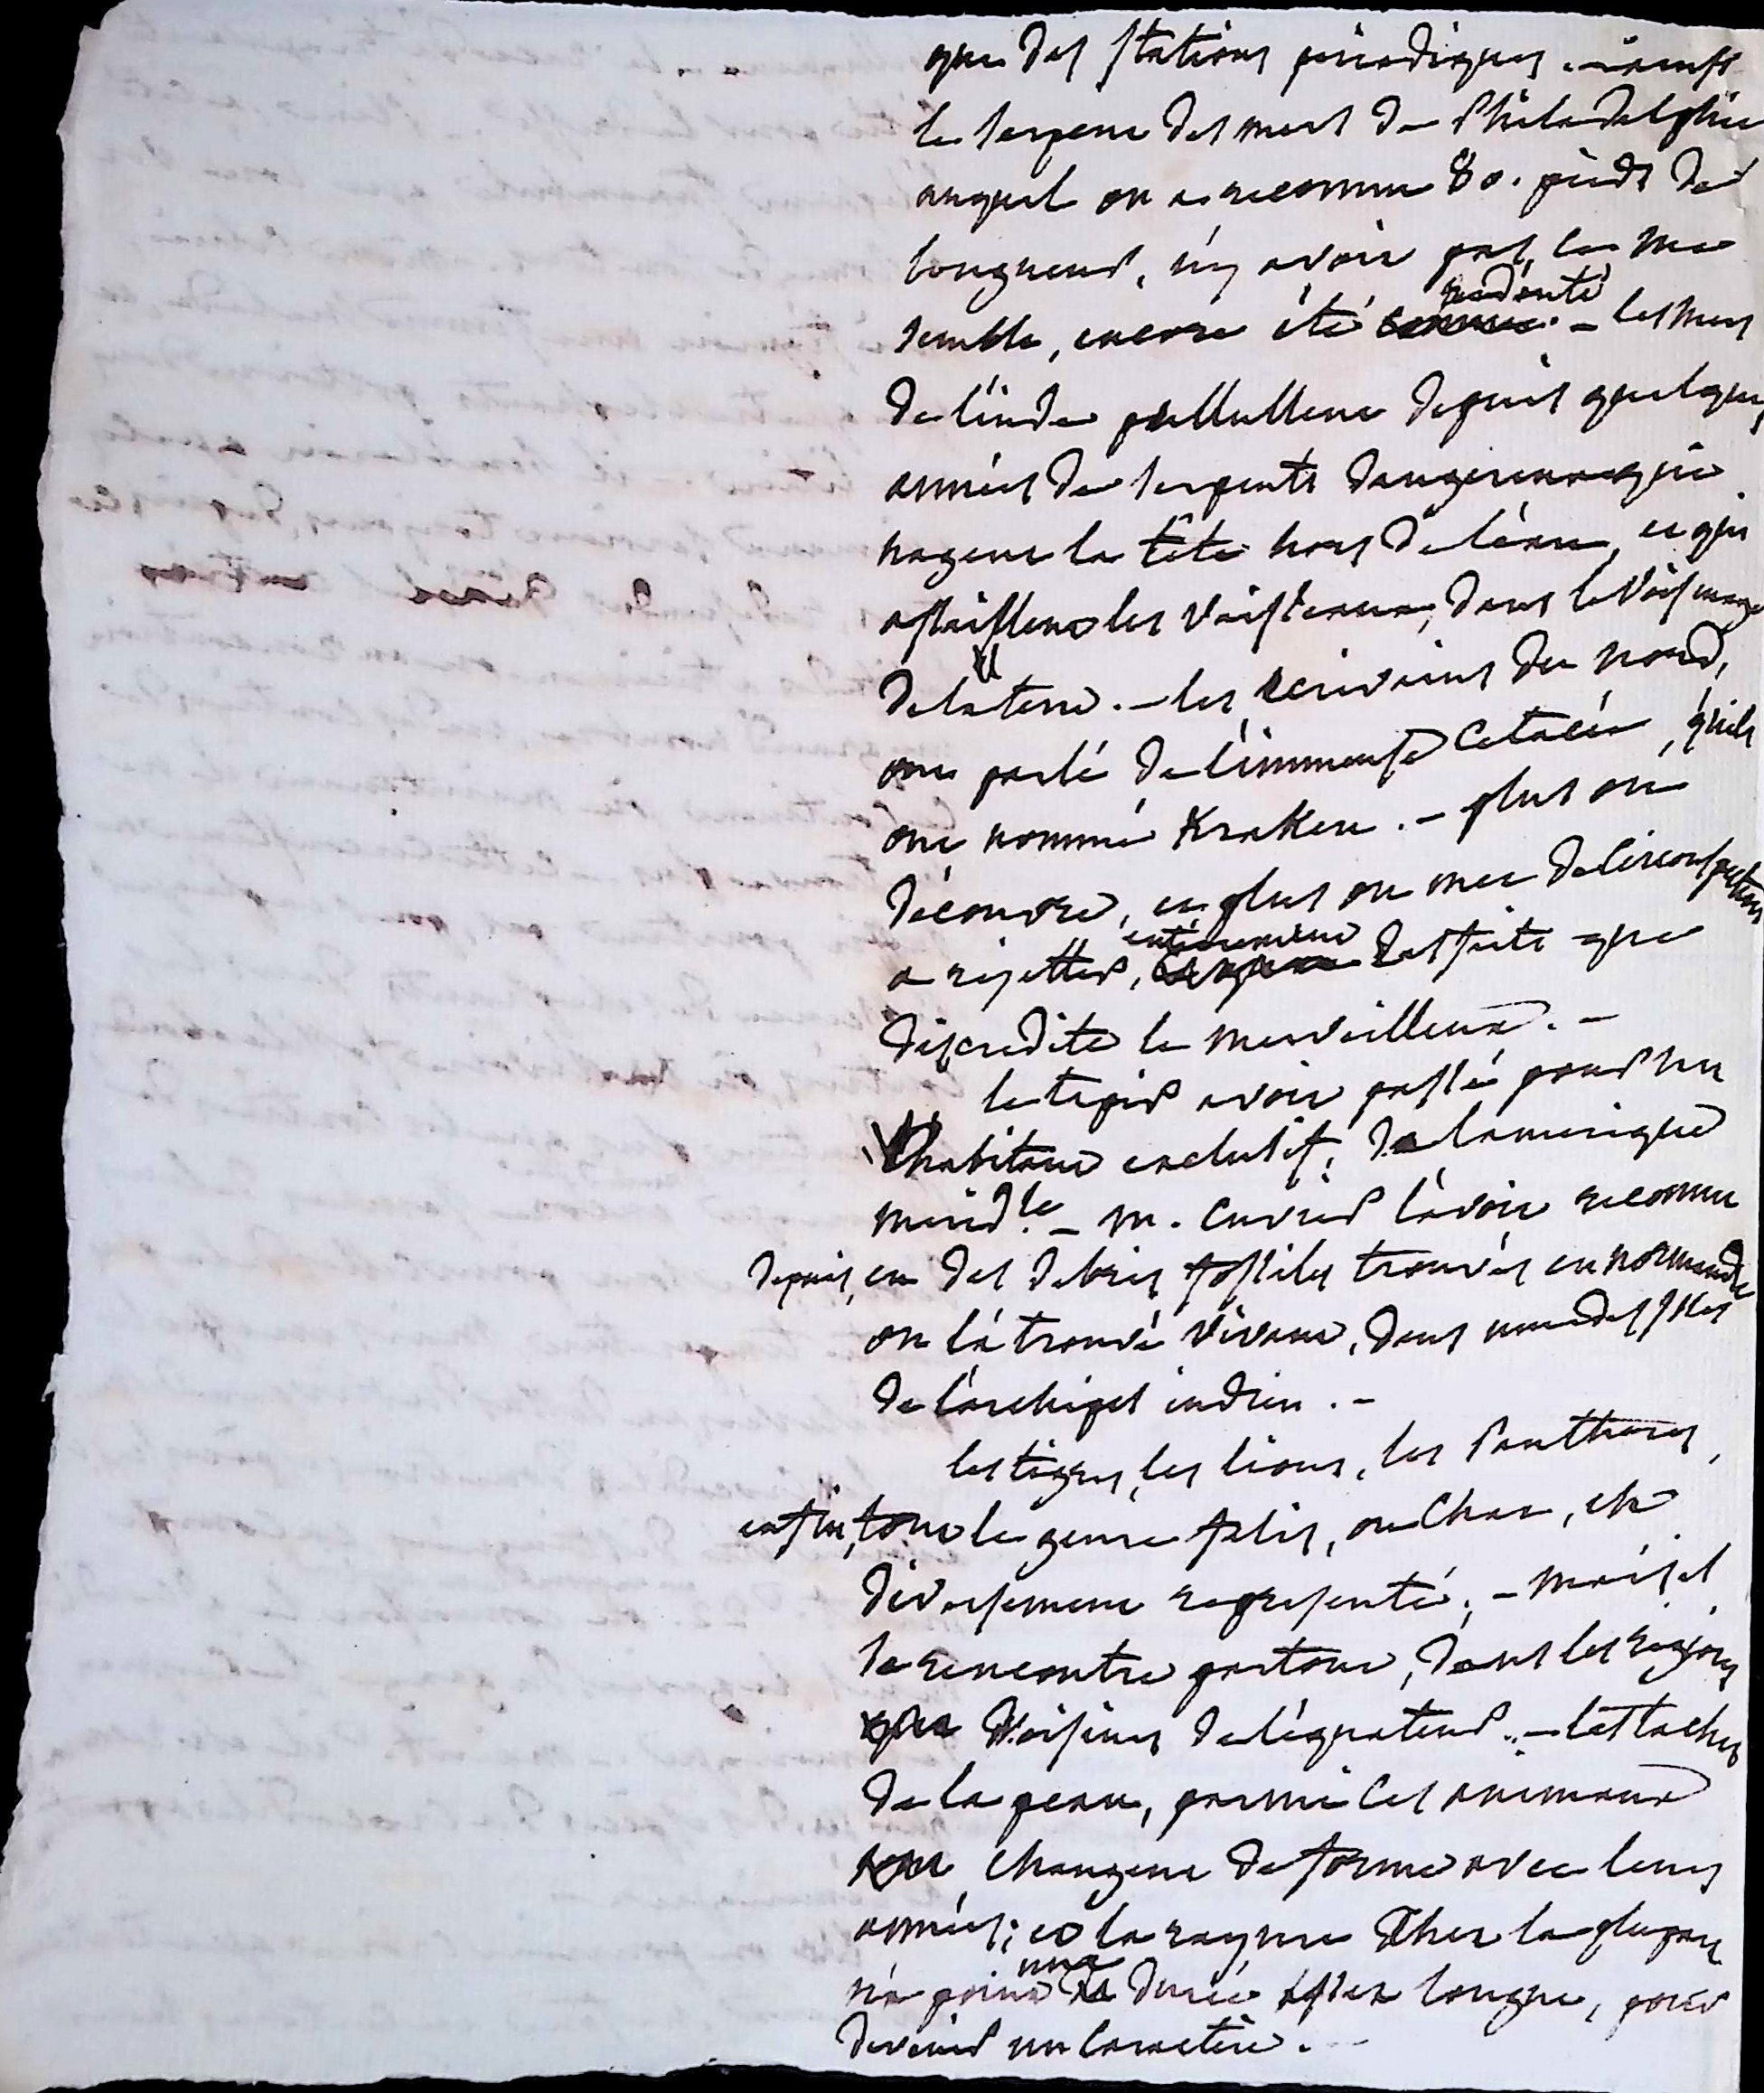 que des stations periodiques. – ainsi
le serpent des mers de Philadelphie
auquel on a reconnu 80. pieds de
longueur, n'y avoit pas, ce me
semble, encore été redouté. – les mers
de l'inde pullullent depuis quelques
années de serpents dangereux qui
nagent la tête hors de l'eau, et qui
assaillent les vaisseaux, dans le voisinage
de la terre. – les écrivains du nord,
ont parlé de l'immense Cetacée, qu'ils
ont nommé Kraken. – plus on
découvre, et plus on met de circonspection
a rejetter, entierement des faits que
discredite le merveilleux. –
le tapir avoit passé pour un
habitant exclusif, de lamerique
merid.le – m. Cuvier l'avoit reconnu
depuis, en des debris fossiles trouvés en normandie
on l'a trouvé vivant, dans une des isles
de l'archipel indien. –
les tigres, les lions, les Pantheres,
enfin, tout le genre felis, ou Chat, est
diversement representé, – mais il
se rencontre partout, dans les regions
voisines de l'équateur. – les taches
de la peau, parmi ces animaux
changent de forme avec leurs
années; et la rayure chez la plupart
n'a point une durée assez longue, pour
devenir un caractère.